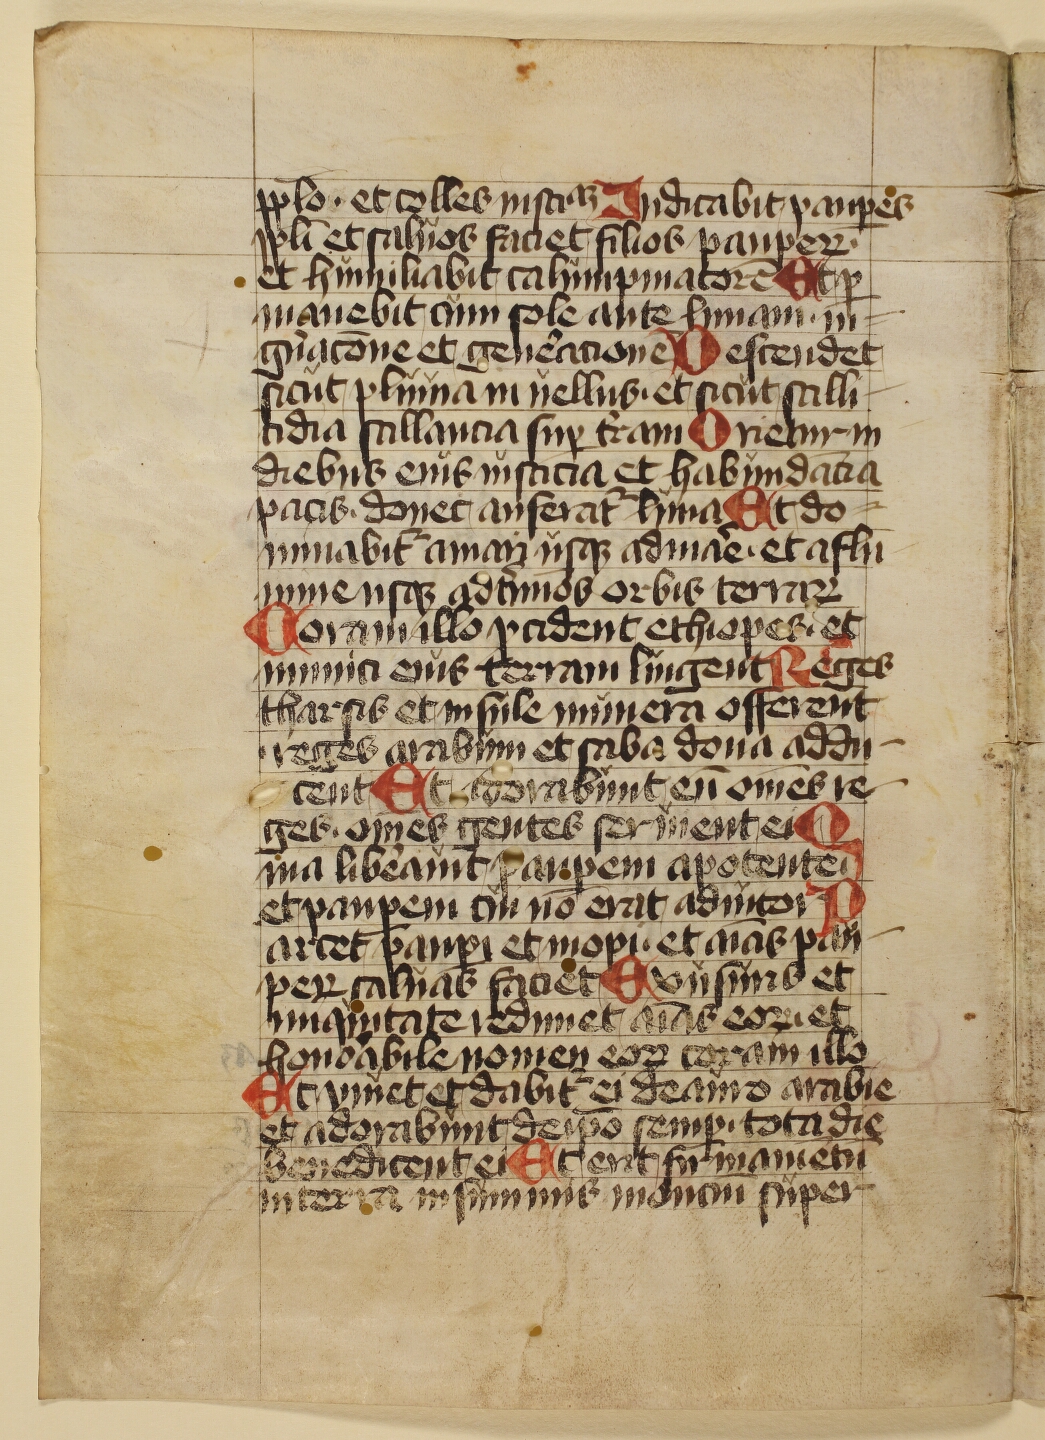 pplo · et colles iusticiā Iudicabit paupes
ppli et saluos faciet filios pauperꝝ ·
et humiliabit calumpniatorē Et p
manebit cum sole ante lunam · in
gn̄acōne et gen̄eracionē Descendet
sicut pluuia in uellus · et sicut stilli
cidia stillancia sup t̄ram Orietur in
diebus eius iusticia et habundācia
pacis · donec auferat᷑ luna Et do
minabit᷑ amari usqꝫ admare · et a flu
mine usqꝫ adt̄minos orbis terraꝝ
Coram illo ꝓcident ethiopes · et
inimici eius terram lingent Reges
tharsis et insule munera offerent
· reges arabum et saba dona addu
cent Et adorabunt eū omēs re
ges · omēs gentes seruient ei Q
uia lib̄eauit paupem apotente ·
et paupem cui nō erat adiutor P
arcet paupi et inopi · et aīas pau
perꝝ saluas faciet Ex usuris et
iniquitate redimet aīas eoꝝ · et
honōabile nomen eoꝝ coram illo
Et uiuet et dabit᷑ ei deauro arabie
et adorabunt deip̄o semp · tota die
benedicent ei Et erit firmamētū
in terra in summis monciū super